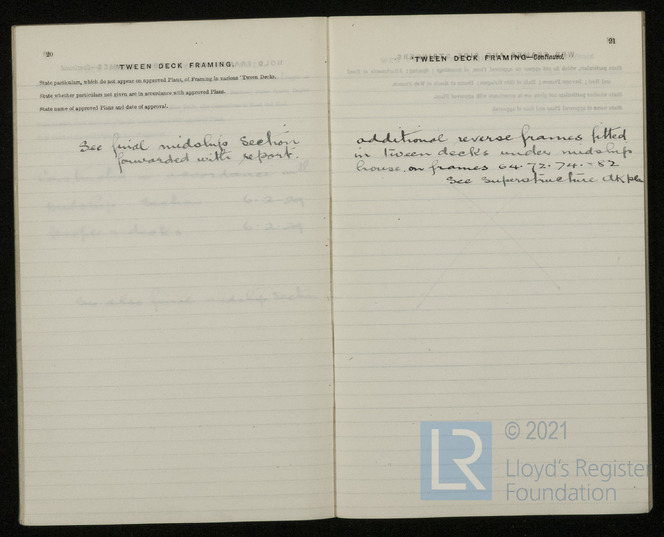 20
'TWEEN DECK FRAMING.
State particulars, which do not appear on approved Plans, of Framing in various 'Tween Decks.
State whether particulars not given are in accordance with approved Plans.
State name of approved Plans and date of approval.
See final midship section
forwarded with report.
21
'TWEEN DECK FRAMING—Continued.
additional reverse frames fitted
in tween decks under midship
house, on frames 64. 72. 74. 82
See Superstructure dk
LR
© 2021
Lloyd's Register
Foundation